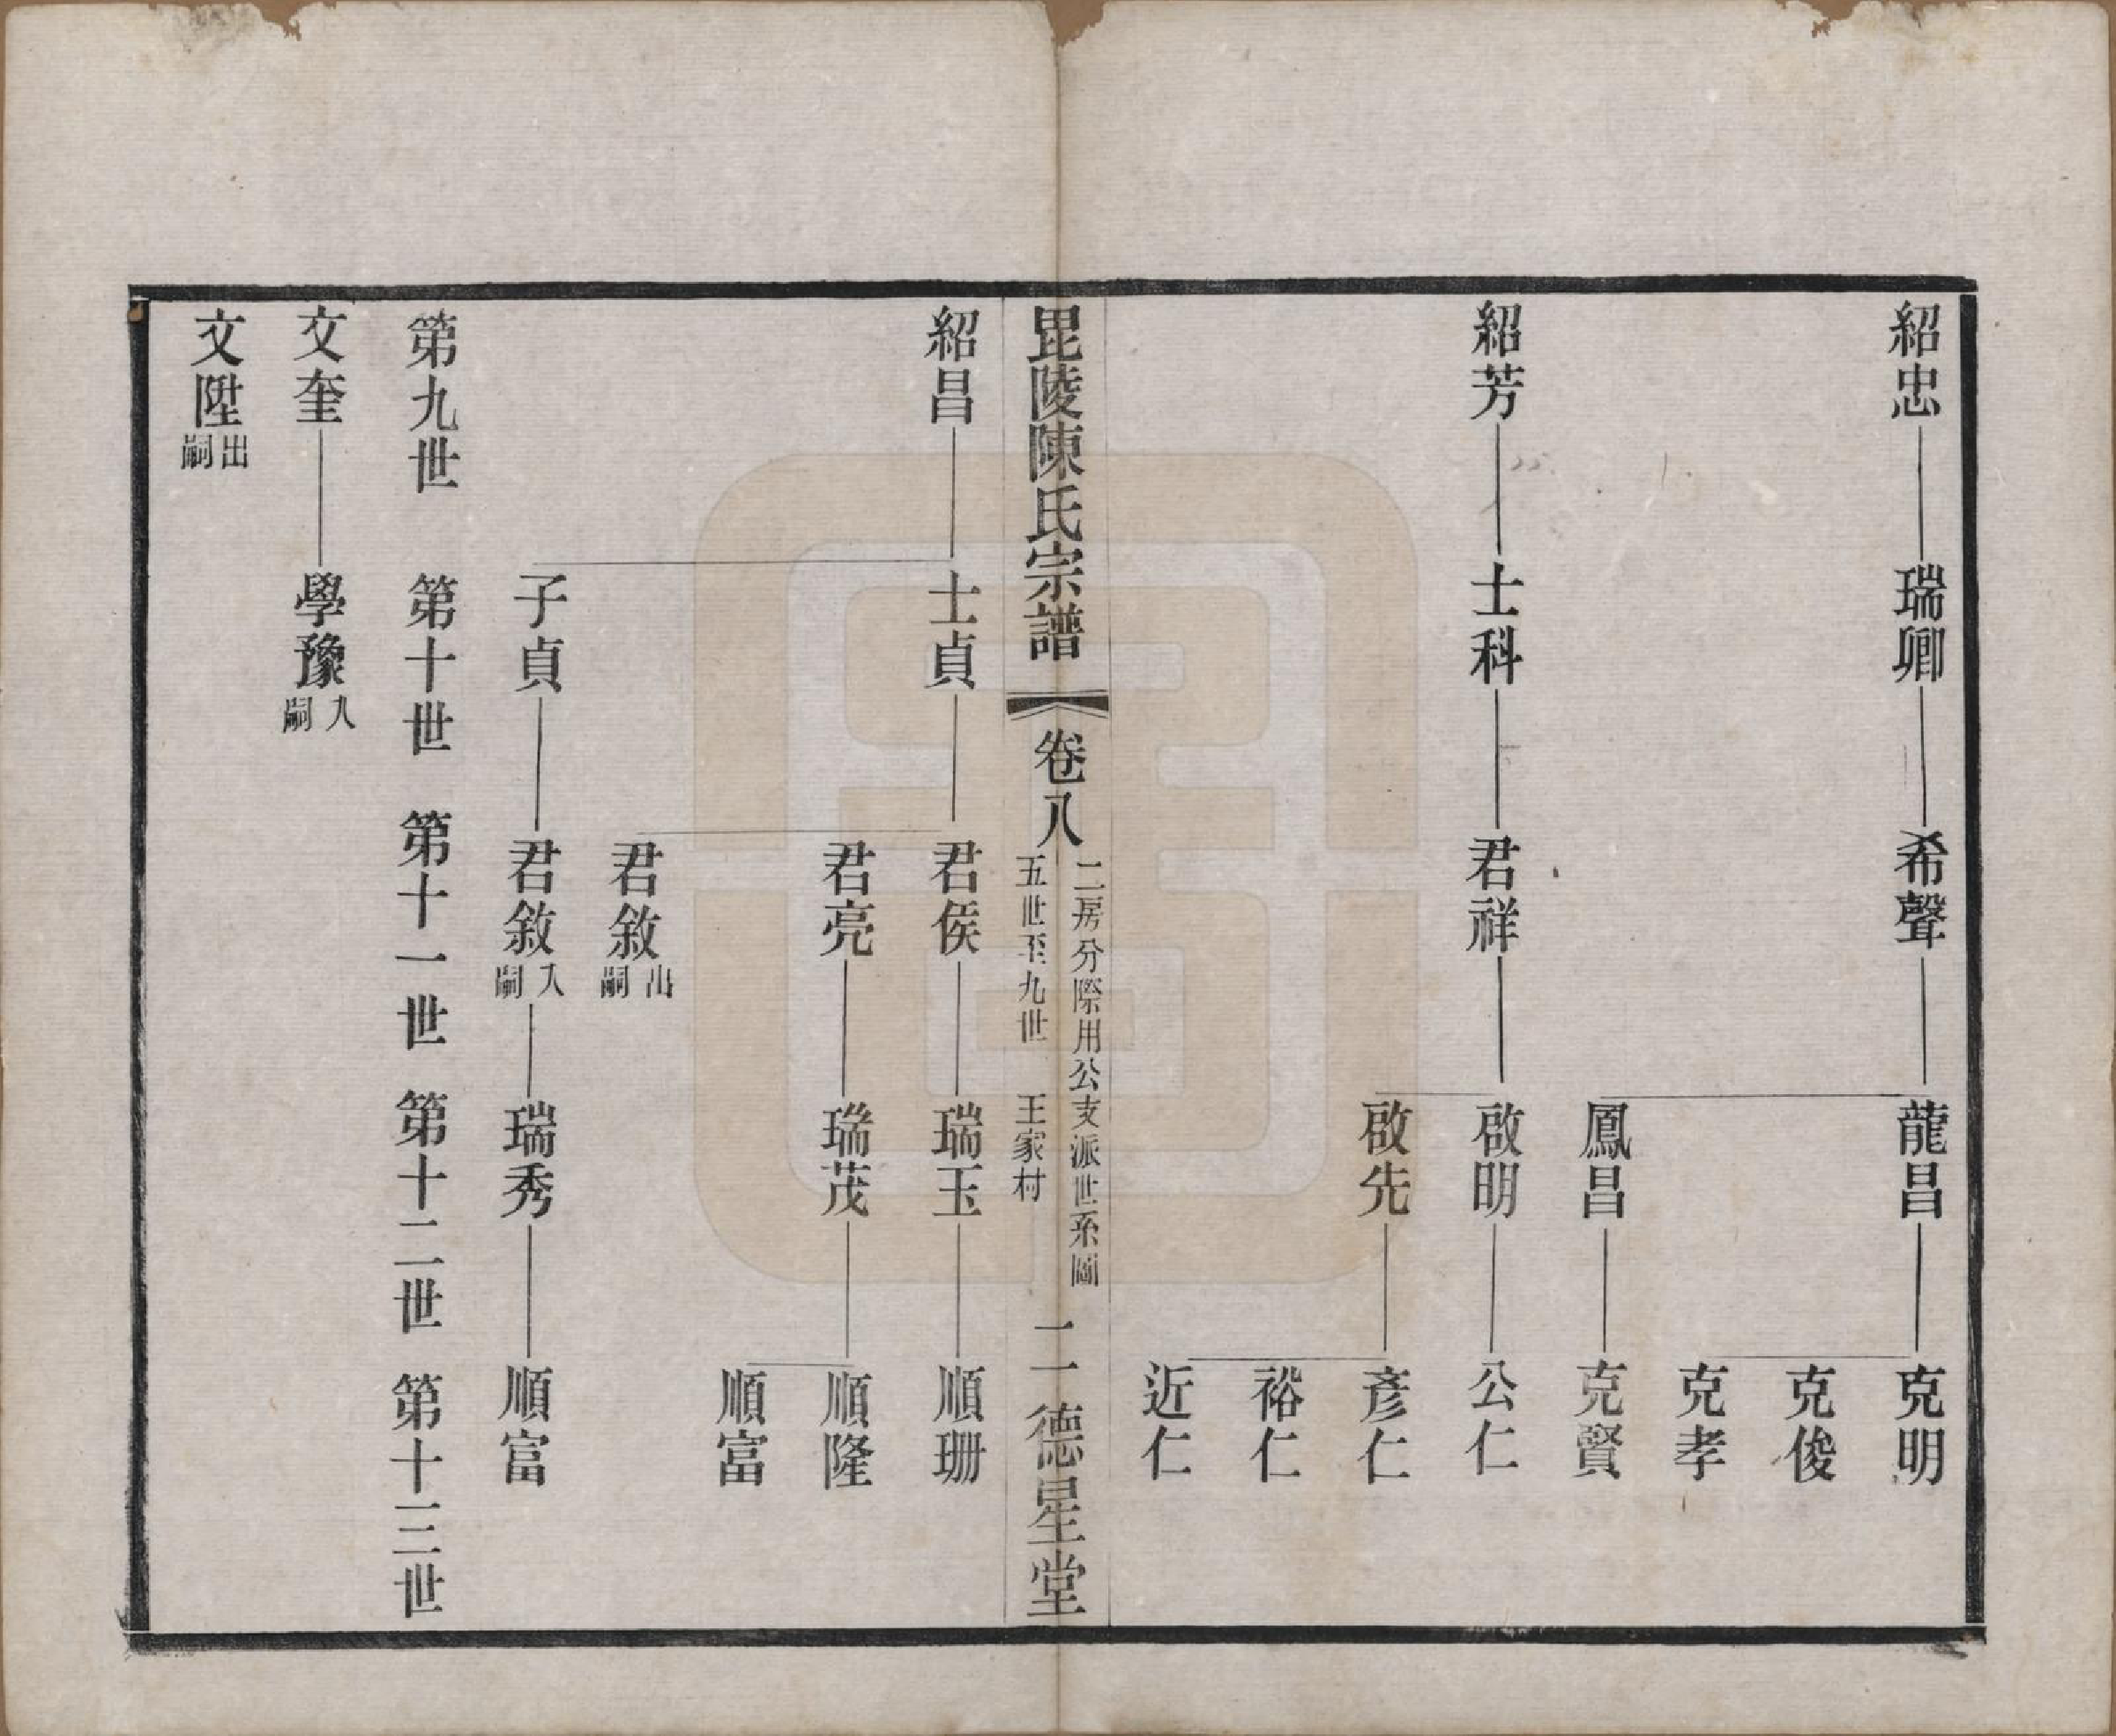 紹忠 瑞卿 希聲 龍昌 克明
克俊
克孝
鳳昌 克賢
紹芳 士科 君祥 啟明 公仁
啟先 彥仁
裕仁
近仁
毘陵陳氏宗譜 卷八 二房分際用公支派世系圖 五世至九世 王家村 二 德星堂
紹昌 士貞 君侯 瑞玉 順珊
君亮 瑞茂 順隆
順富
君敘出嗣
子貞 君敘入嗣 瑞秀 順富
第九世 第十世 第十一世 第十二世 第十三世
文奎 學豫入嗣
文陞出嗣